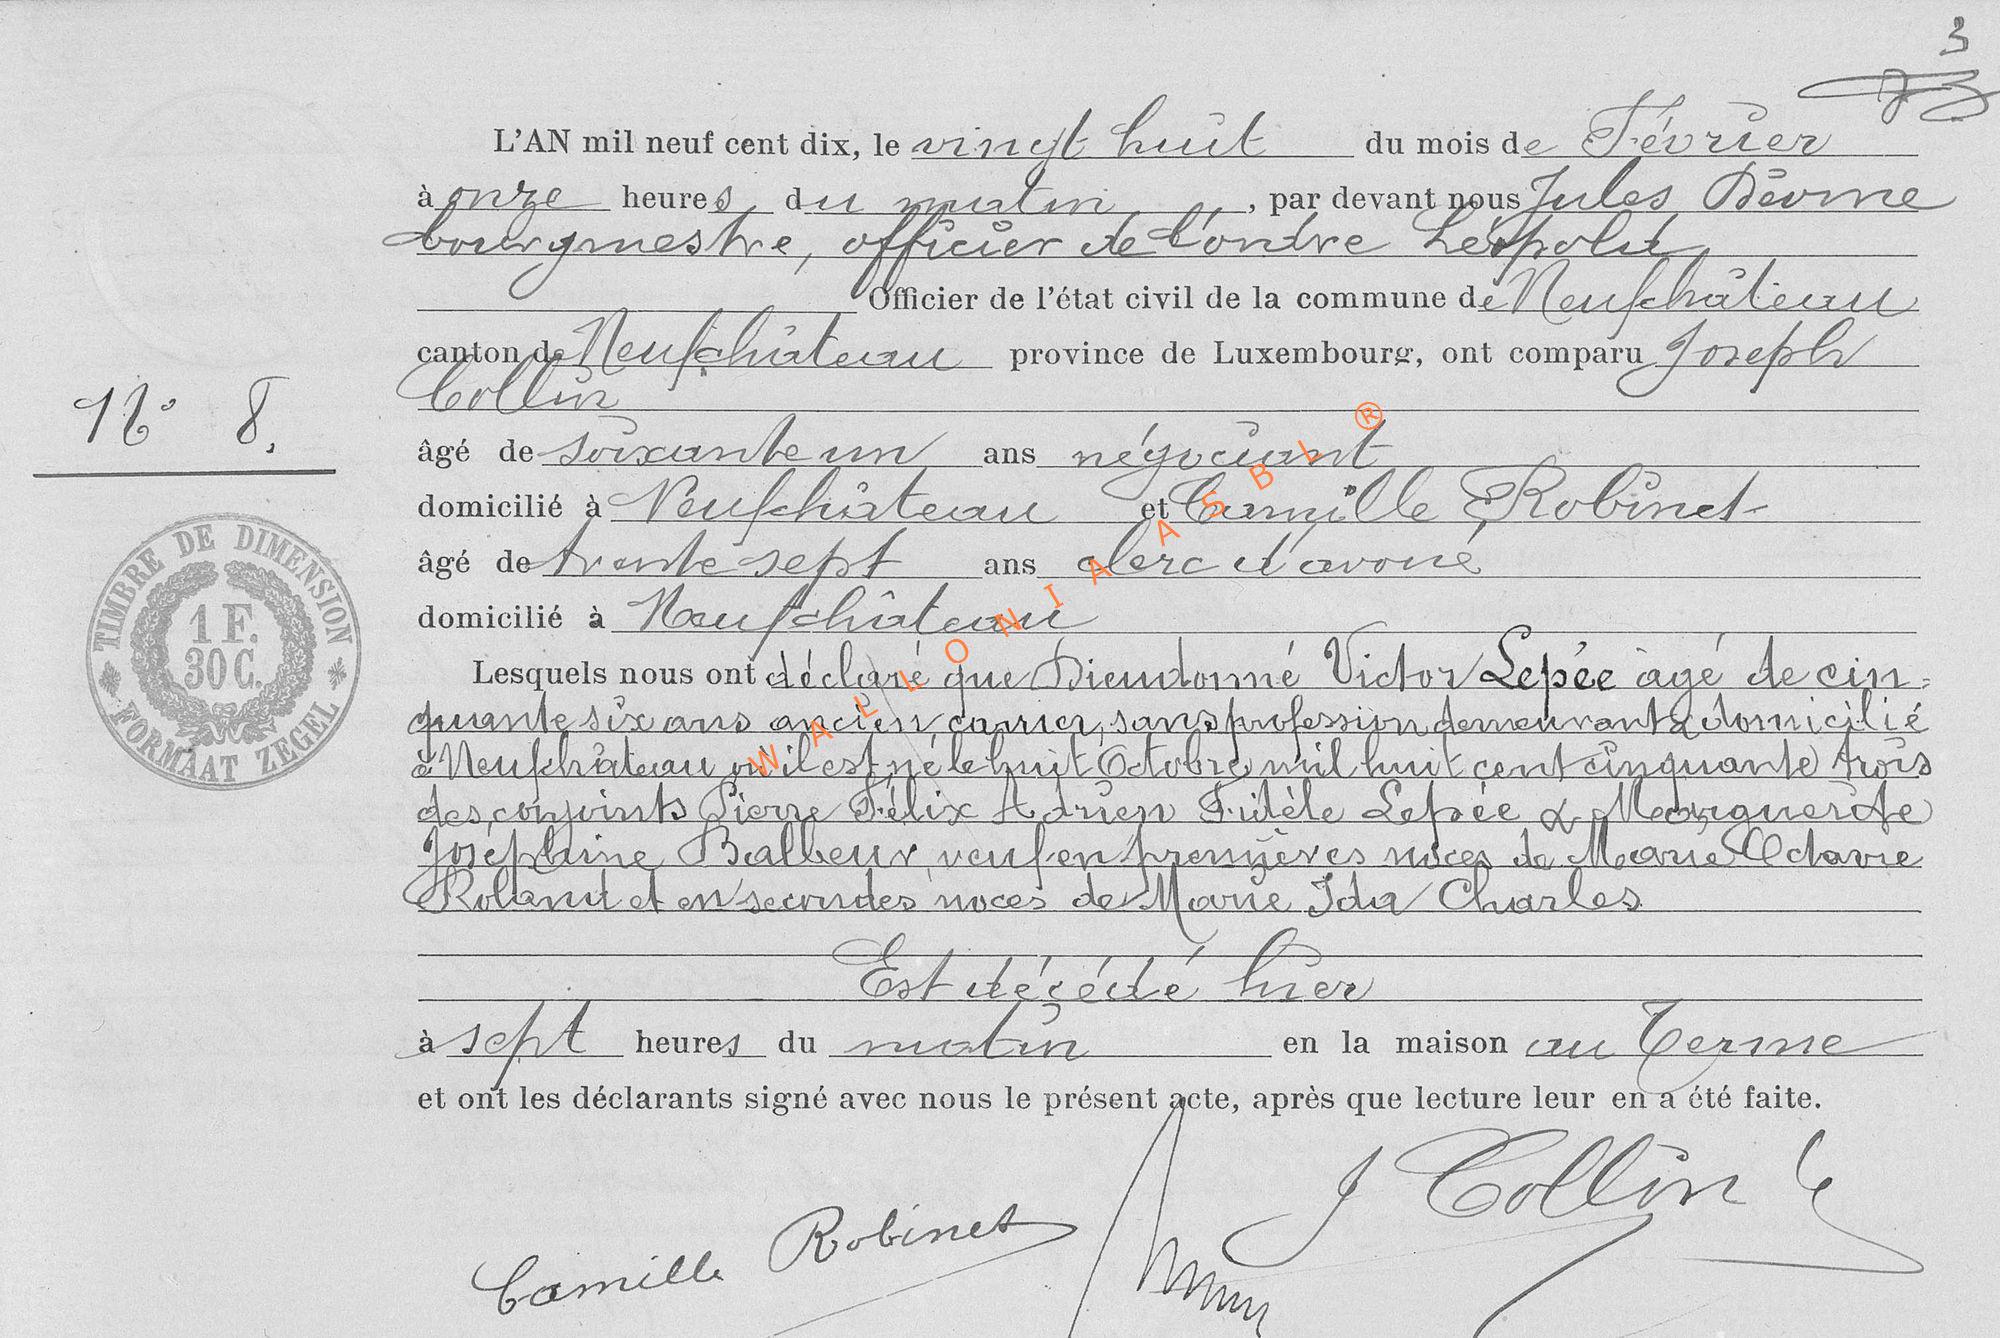 3
L'AN mil neuf cent dix, le vingt huit du mois de Février
à onze heures du matin, par devant nous Jules
bourgmestre, officier de l'ordre Léopold
Officier de l'état civil de la commune de Neufchâteau
canton de Neufchâteau province de Luxembourg, ont comparu Joseph
Collin
N° 8.
âgé de soixante un ans négociant
domicilié à Neufchâteau et Camille Robinet
âgé de trente sept ans clerc d'avoué
domicilié à Neufchâteau
TIMBRE DE DIMENSION
1 F.
30 C.
FORMAAT ZEGEL
Lesquels nous ont déclaré que Dieudonné Victor Lepée âgé de cin=
quante six ans ancien, sans profession demeurant & domicilié
à Neufchâteau où il est né le huit Octobre mil huit cent cinquante trois
des conjoints Pierre Félix Adrien Fidèle Lepée & Marguerite
Joséphine Balbeur, veuf en premières noces de Marie Octavie
Roland et en secondes noces de Marie Ida Charles
Est décédé hier
à sept heures du matin en la maison au Terme
et ont les déclarants signé avec nous le présent acte, après que lecture leur en a été faite.
J Collin
Camille Robinet
WALLONIA ASBL ®